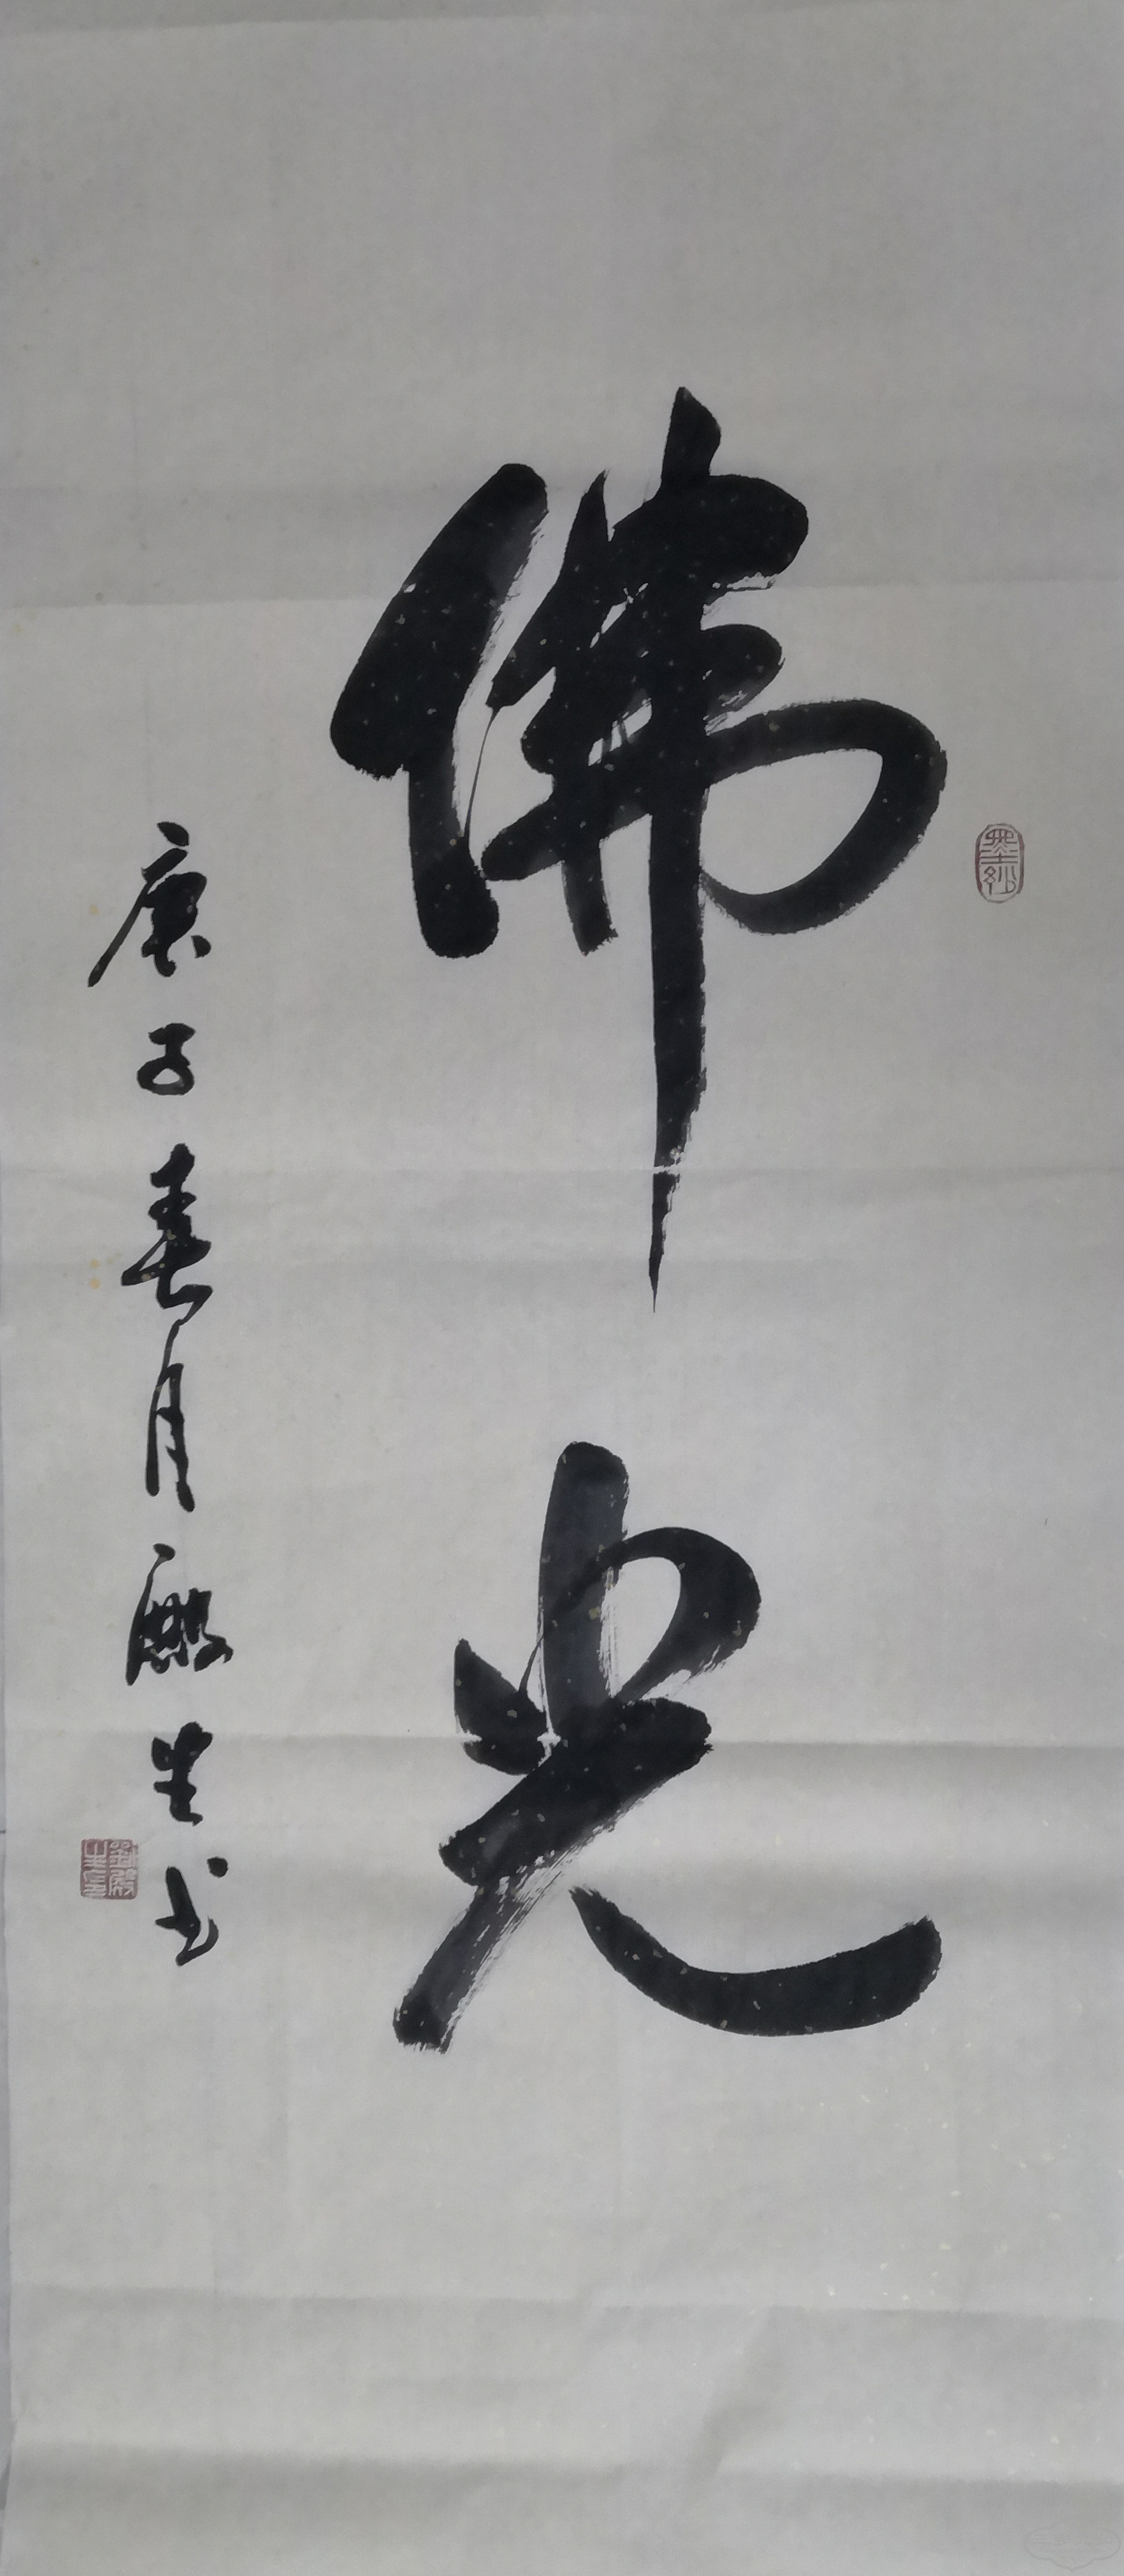 佛光
庚子春月殿生书